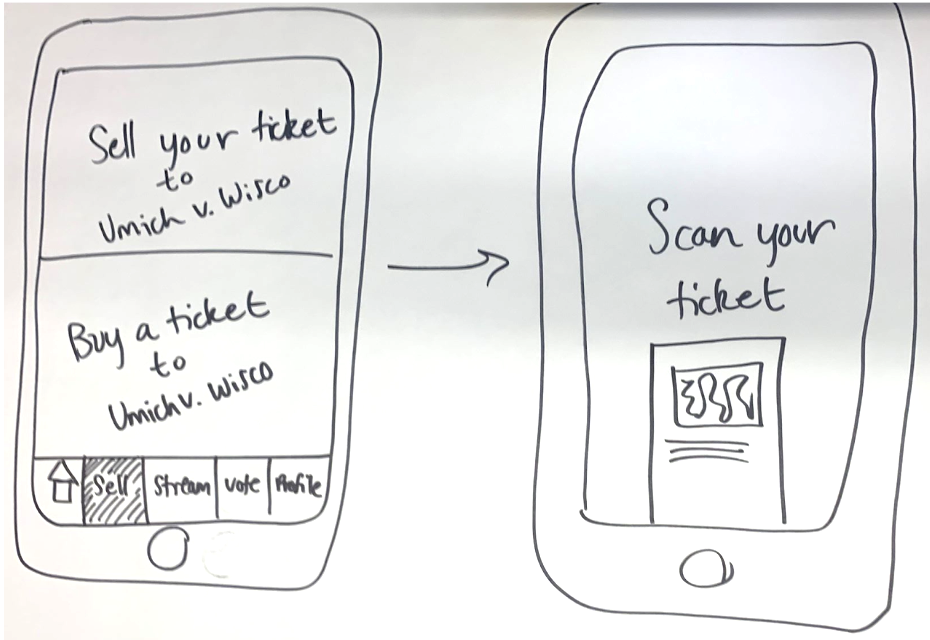 Sell your ticket
to
Umich v. Wisco
Buy a ticket
to
Umich v. Wisco
Sell Stream Vote Profile
Scan your
ticket